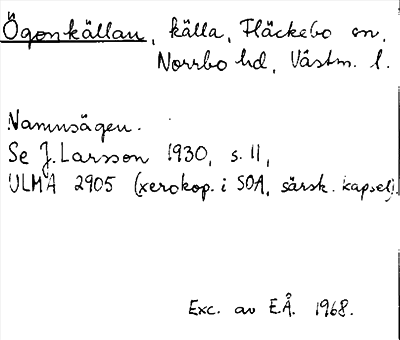 Ögonkällan, källa, Fläckebo sn,
Norrbo hd, Västm. l.
Namnsägen.
Se J. Larsson 1930, s. 11,
ULMA 2905 (xerokop. i SOA, särsk. kapsel).
Exc. av E.Å. 1968.